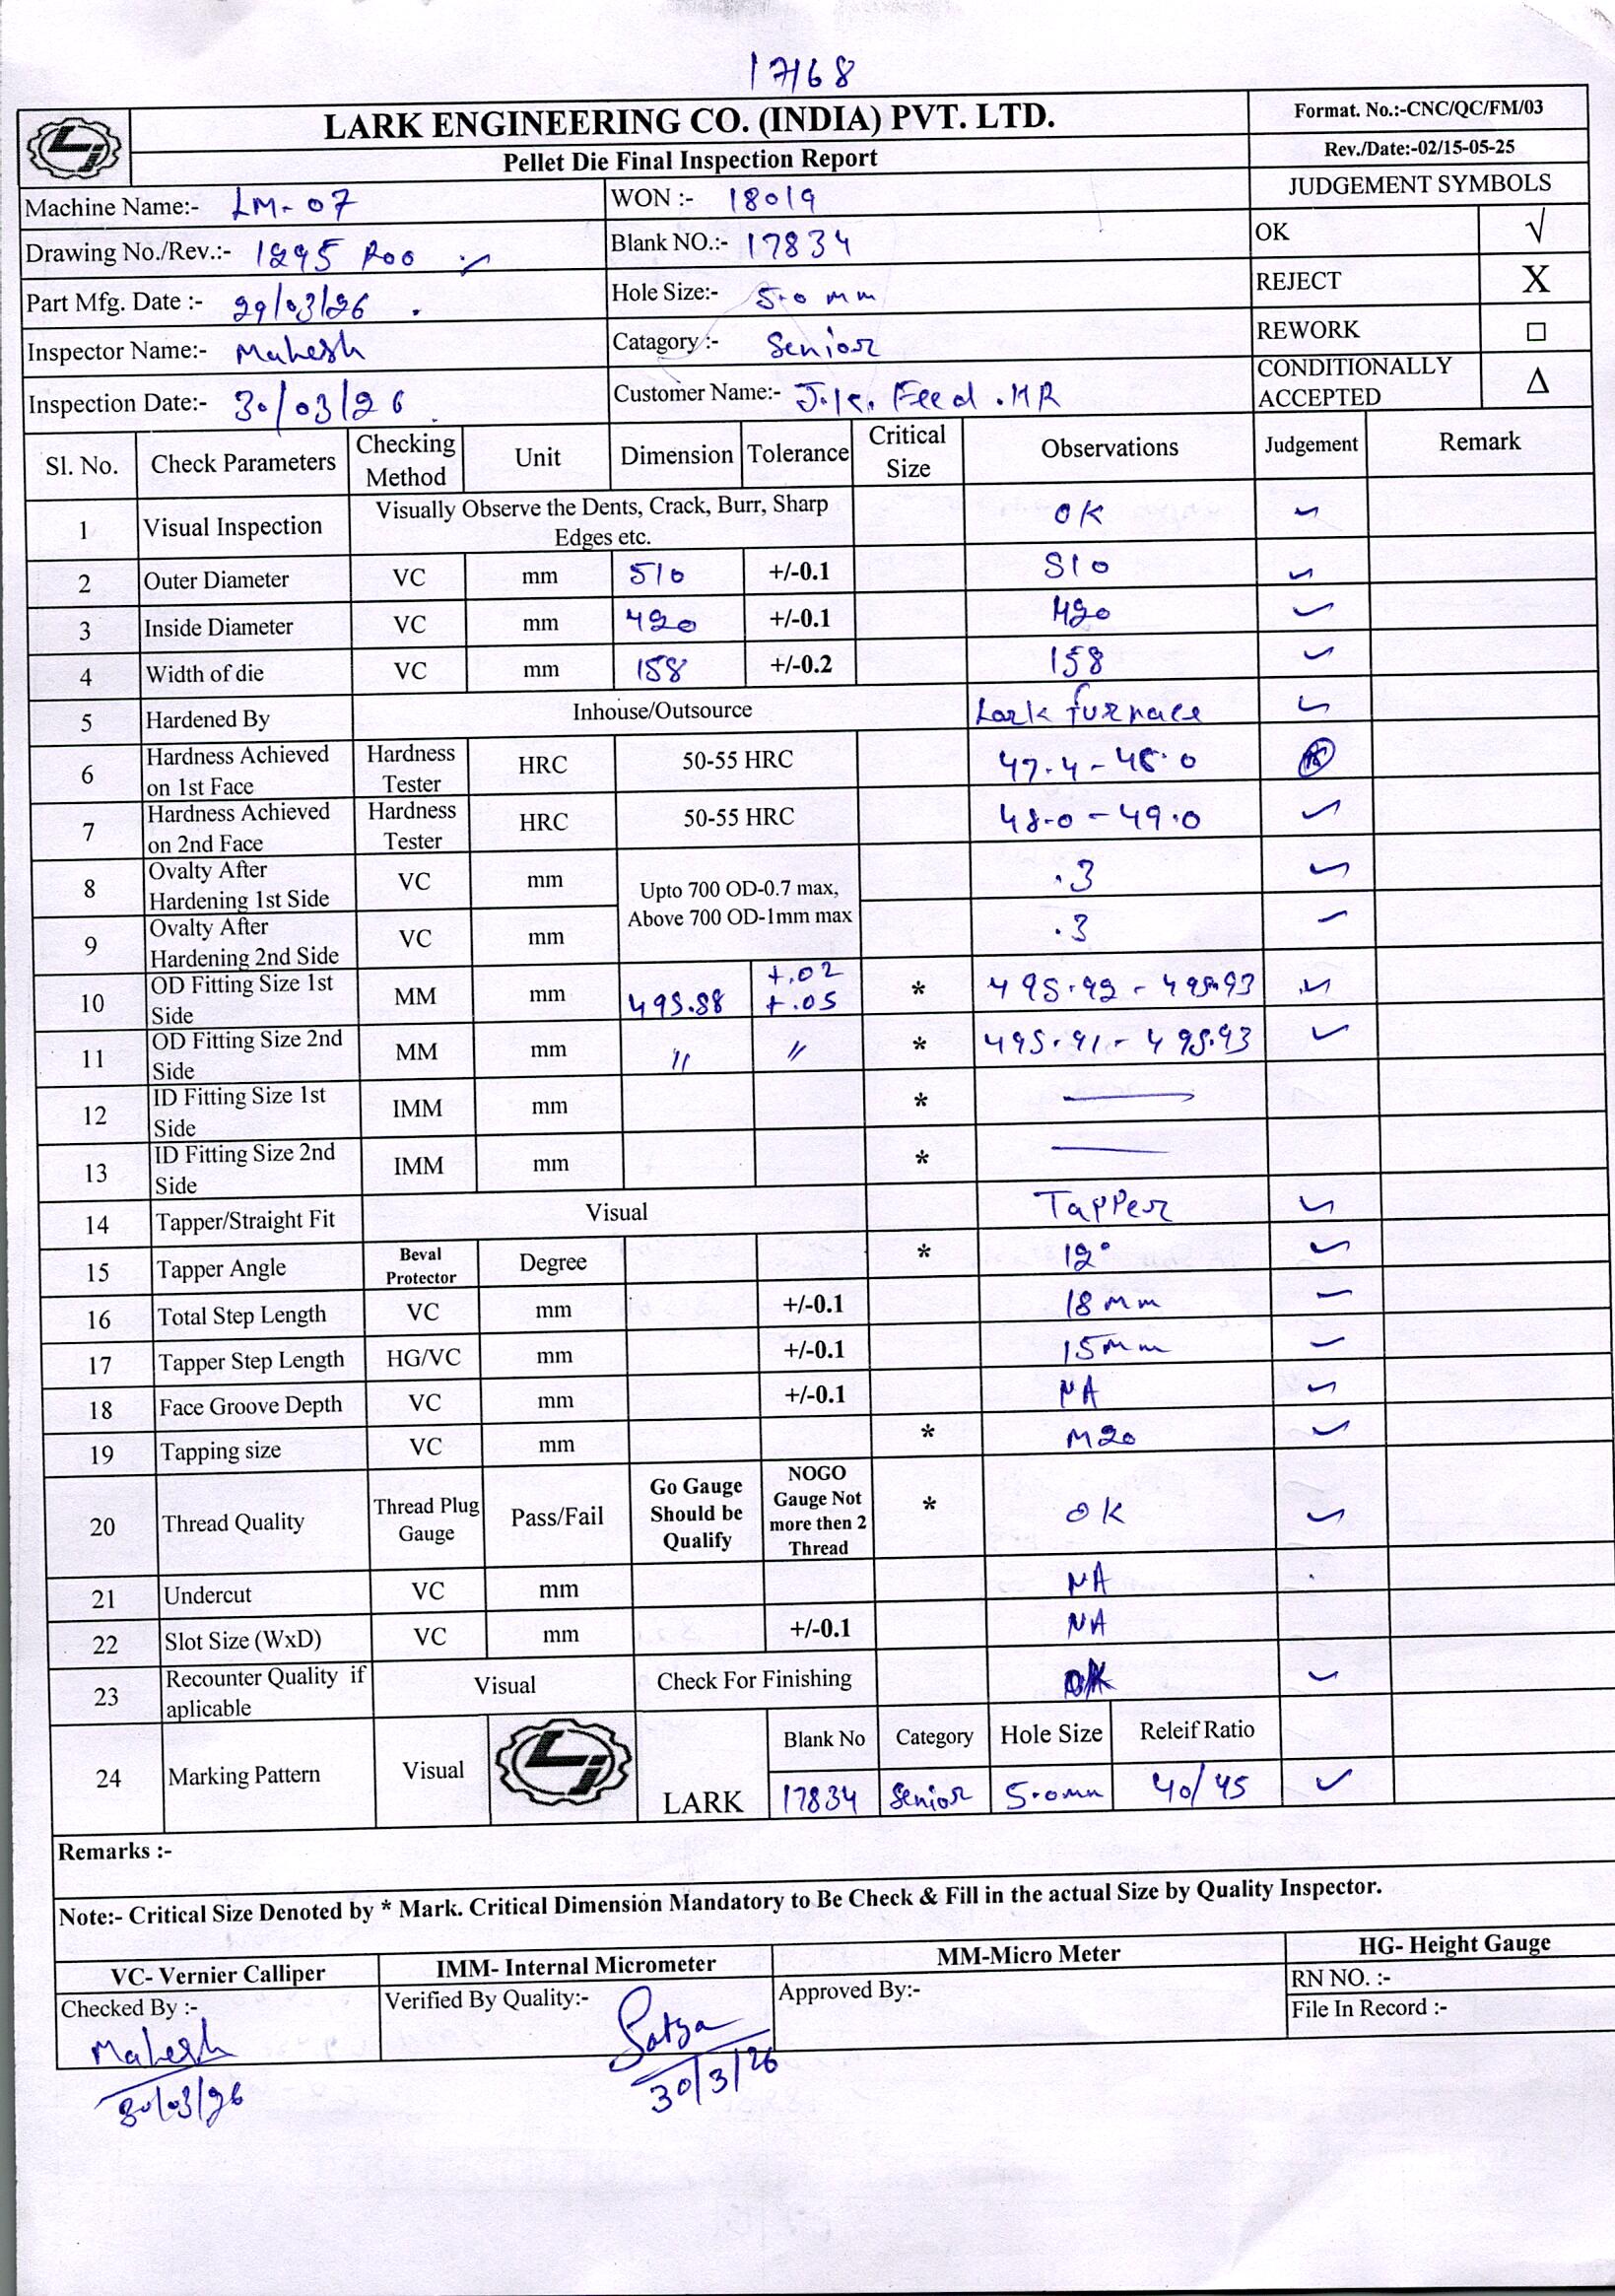 17168
LARK ENGINEERING CO. (INDIA) PVT. LTD.
Pellet Die Final Inspection Report
Format. No.:-CNC/QC/FM/03
Rev./Date:-02/15-05-25
Machine Name:- LM-07
WON :- 18019
JUDGEMENT SYMBOLS
Drawing No./Rev.:- 1295 R00
Blank NO.:- 17834
OK √
Part Mfg. Date :- 29/03/26
Hole Size:- 5.0 mm
REJECT X
Inspector Name:- Mahesh
Catagory :- Senior
REWORK □
Inspection Date:- 30/03/26
Customer Name:- J.K. Feed .HR
CONDITIONALLY ACCEPTED Δ
Sl. No. Check Parameters Checking Method Unit Dimension Tolerance Critical Size Observations Judgement Remark
1 Visual Inspection Visually Observe the Dents, Crack, Burr, Sharp Edges etc. OK ✓
2 Outer Diameter VC mm 510 +/-0.1 510 ✓
3 Inside Diameter VC mm 420 +/-0.1 420 ✓
4 Width of die VC mm 158 +/-0.2 158 ✓
5 Hardened By Inhouse/Outsource Lark furnace ✓
6 Hardness Achieved on 1st Face Hardness Tester HRC 50-55 HRC 47.4-48.0
7 Hardness Achieved on 2nd Face Hardness Tester HRC 50-55 HRC 48.0-49.0 ✓
8 Ovalty After Hardening 1st Side VC mm Upto 700 OD-0.7 max, Above 700 OD-1mm max .3 ✓
9 Ovalty After Hardening 2nd Side VC mm .3 ✓
10 OD Fitting Size 1st Side MM mm 495.88 +.02 +.05 * 495.92-495.93 ✓
11 OD Fitting Size 2nd Side MM mm " " * 495.91-495.93 ✓
12 ID Fitting Size 1st Side IMM mm * —
13 ID Fitting Size 2nd Side IMM mm * —
14 Tapper/Straight Fit Visual Tapper ✓
15 Tapper Angle Beval Protector Degree * 12° ✓
16 Total Step Length VC mm +/-0.1 18 mm ✓
17 Tapper Step Length HG/VC mm +/-0.1 15mm ✓
18 Face Groove Depth VC mm +/-0.1 NA ✓
19 Tapping size VC mm * M20 ✓
20 Thread Quality Thread Plug Gauge Pass/Fail Go Gauge Should be Qualify NOGO Gauge Not more then 2 Thread * OK ✓
21 Undercut VC mm NA
22 Slot Size (WxD) VC mm +/-0.1 NA
23 Recounter Quality if aplicable Visual Check For Finishing OK ✓
24 Marking Pattern Visual LARK Blank No Category Hole Size Releif Ratio
17834 Senior 5.0mm 40/45 ✓
Remarks :-
Note:- Critical Size Denoted by * Mark. Critical Dimension Mandatory to Be Check & Fill in the actual Size by Quality Inspector.
VC- Vernier Calliper IMM- Internal Micrometer MM-Micro Meter HG- Height Gauge
Checked By :- Verified By Quality:- Approved By:- RN NO. :-
File In Record :-
Mahesh
30/03/26
Satya
30/3/26